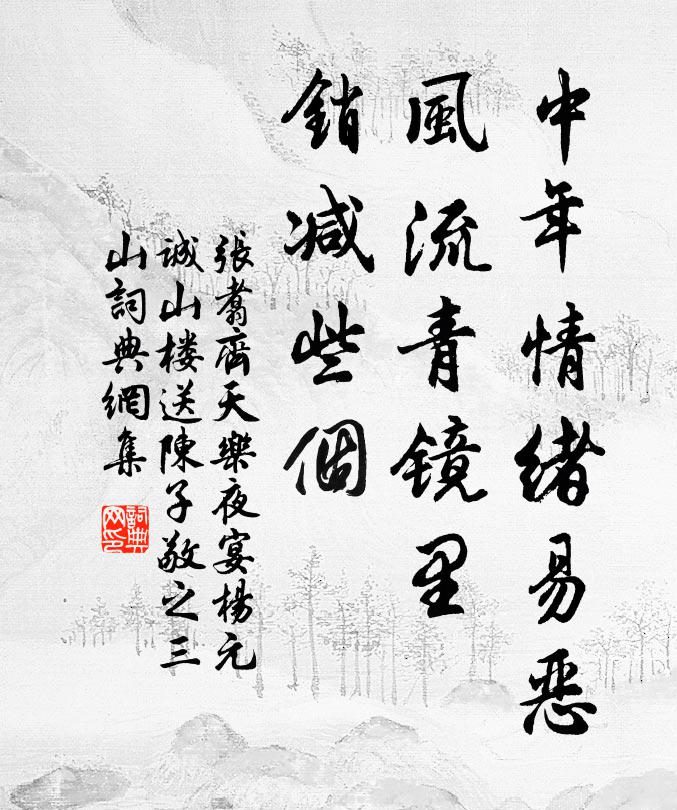 中年情绪易恶
風流青镜里
銷减些個
張翥齊天樂夜宴楊元
诚山楼送陳子敬之三
山詞典網集
詞典
网印